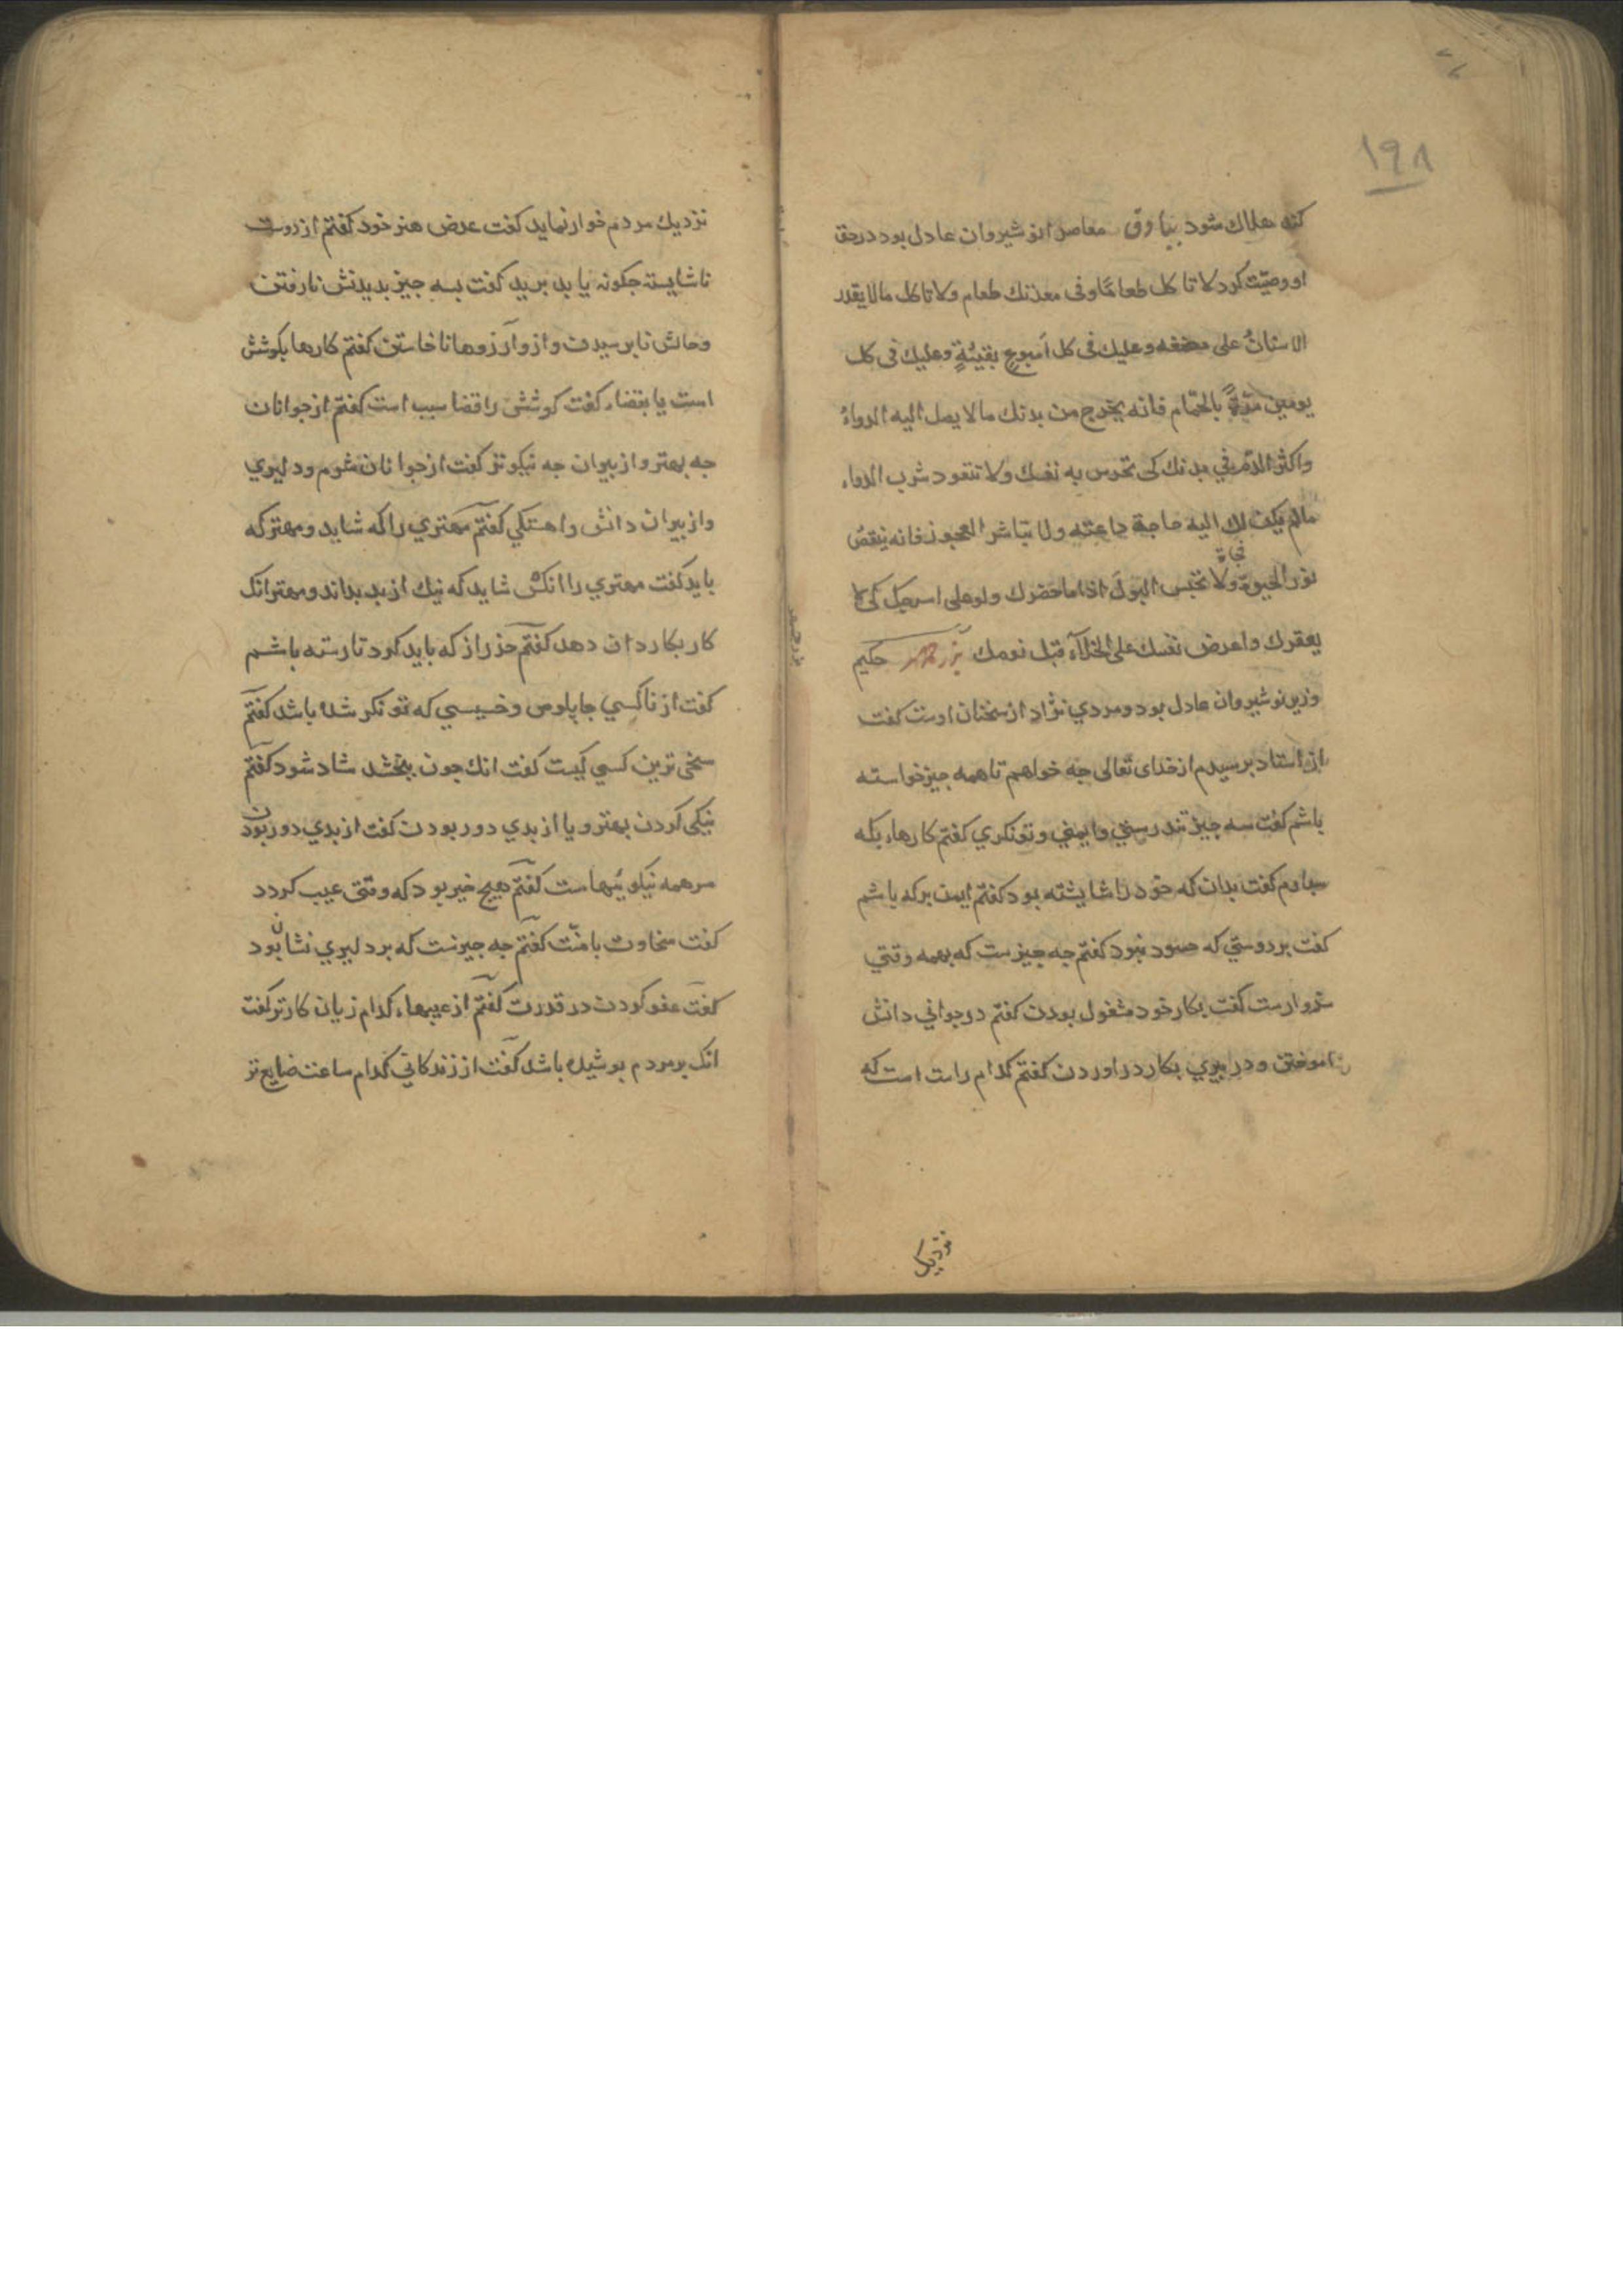 ١٩٨
كند هلاك شود بياوق معاصر انوشيروان عادل بود درحق
او وصيّت كرد لا تاكل طعامًا وفى معدتك طعام ولا تاكل مالا يقدر
الاسنانُ على مضغه وعليك فى كل اُسبوعٍ بقيئةٍ وعليك فى كل
يومين مرّةً بالحمّام فانه يخرج من بدنك مالا يصل اليه الدواءُ
واكثر الدّم في بدنك كى تحرس به نفسك ولا تتعود شرب الدواء
مالم يكن لك اليه حاجة داعية ولا تباشر العجوز فانه ينقصُ
نور الحيوة ولا تحبس البولَ اذا ما حضرك ولو على اسرجك كى لا
فجاة
يعقرك واعرض نفسك على الخلآء قبل نومك بزرجمهر حكيم
وزير نوشيروان عادل بود ومردي نژاد از سخنان اوست كفت
از استاد برسيدم از خداى تعالى جه خواهم تا همه جيز خواسته
باشم كفت سه جيز تندرستي وايمني وتونكري كفتم كارها، بكه
سبارم كفت بدان كه خود را شايسته بود كفتم ايمن بركه باشم
كفت بردوستي كه حسود نبود كفتم جه جيزست كه بهمه وقتي
سزوارست كفت بكار خود مشغول بودن كفتم درجواني دانش
اموختن ودر بيري بكار دراوردن كفتم كدام راست است كه
نزديك
نزديك مردم خوار نمايد كفت عرض هنر خود كفتم از دوست
ناشايسته جكونه يا بد بريد كفت بسه جيز بديدنش نارفتن
وحالش نابرسيدن وازو آرزوها ناخاستن كفتم كارها بكوشش
است يا بقضاء كفت كوشش را قضا سبب است كفتم از جوانان
جه بهتر واز بيران جه نيكوتر كفت از جوانان شرم ودليري
واز بيران دانش واهستكي كفتم مهتري را كه شايد ومهتر كه
بايد كفت مهتري را انكس شايد كه نيك از بد بداند ومهتر انك
كار بكاردان دهد كفتم حذر از كه بايد كرد تا رسته باشم
كفت از ناكسي جابلوس وخسيسي كه تونكر شده باشد كفتم
سخى ترين كسي كيست كفت انك جون ببخشد شاد شود كفتم
نيكى كردن بهتر ويا از بدي دور بودن كفت از بدي دور بودن
سر همه نيكويئهاست كفتم هيج خير بود كه وقتى عيب كردد
كفت سخاوت با منّت كفتم جه جيزست كه بر دليري نشان بود
كفت عفو كردن در قدرت كفتم از عيبها، كدام زيان كارتر كفت
انك بر مردم بوشيده باشد كفت از زندكاني كدام ساعت ضايع تر